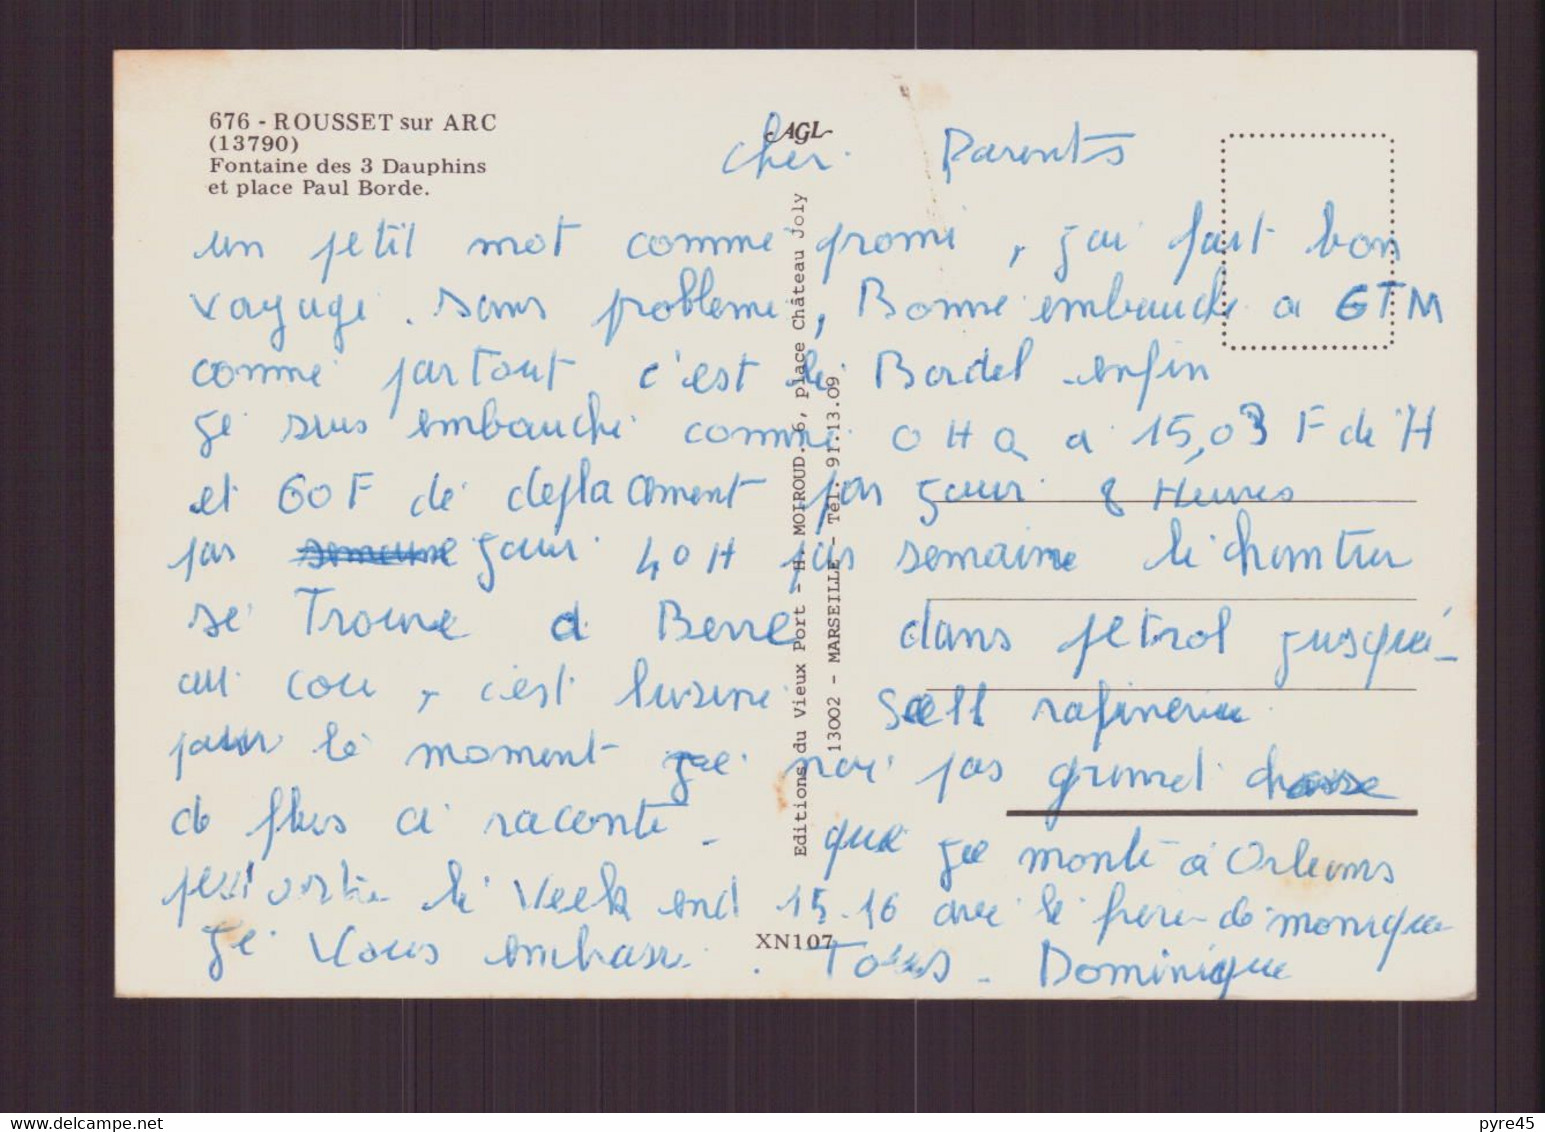 676 - ROUSSET sur ARC
(13790)
Fontaine des 3 Dauphins
et place Paul Borde.
AGL
cher Parents
un petit mot comme promi, j'ai fait bon
voyage. sans probleme, Bonne embauche a GTM
comme partout c'est le Bordel enfin
je suis embauche comme OHQ a 15,03 F de H
et 60 F de deplacement par jour 8 Heures
par semaine jour 40H par semaine le chantier
se Trouve a Berre dans petrol jusqué-
au cou, c'est lusine Saell rafinerie
pour le moment je nai pas grand chosse
de plus a raconte - que je monte a Orleans
peut le Week end 15.16 avec le frere de monique
je Vous embrasse. Tous - Dominique
Editions du Vieux Port - H. MOIROUD. 6, place Château Joly
13002 - MARSEILLE - Tél. 91.13.09
XN107
pyre45